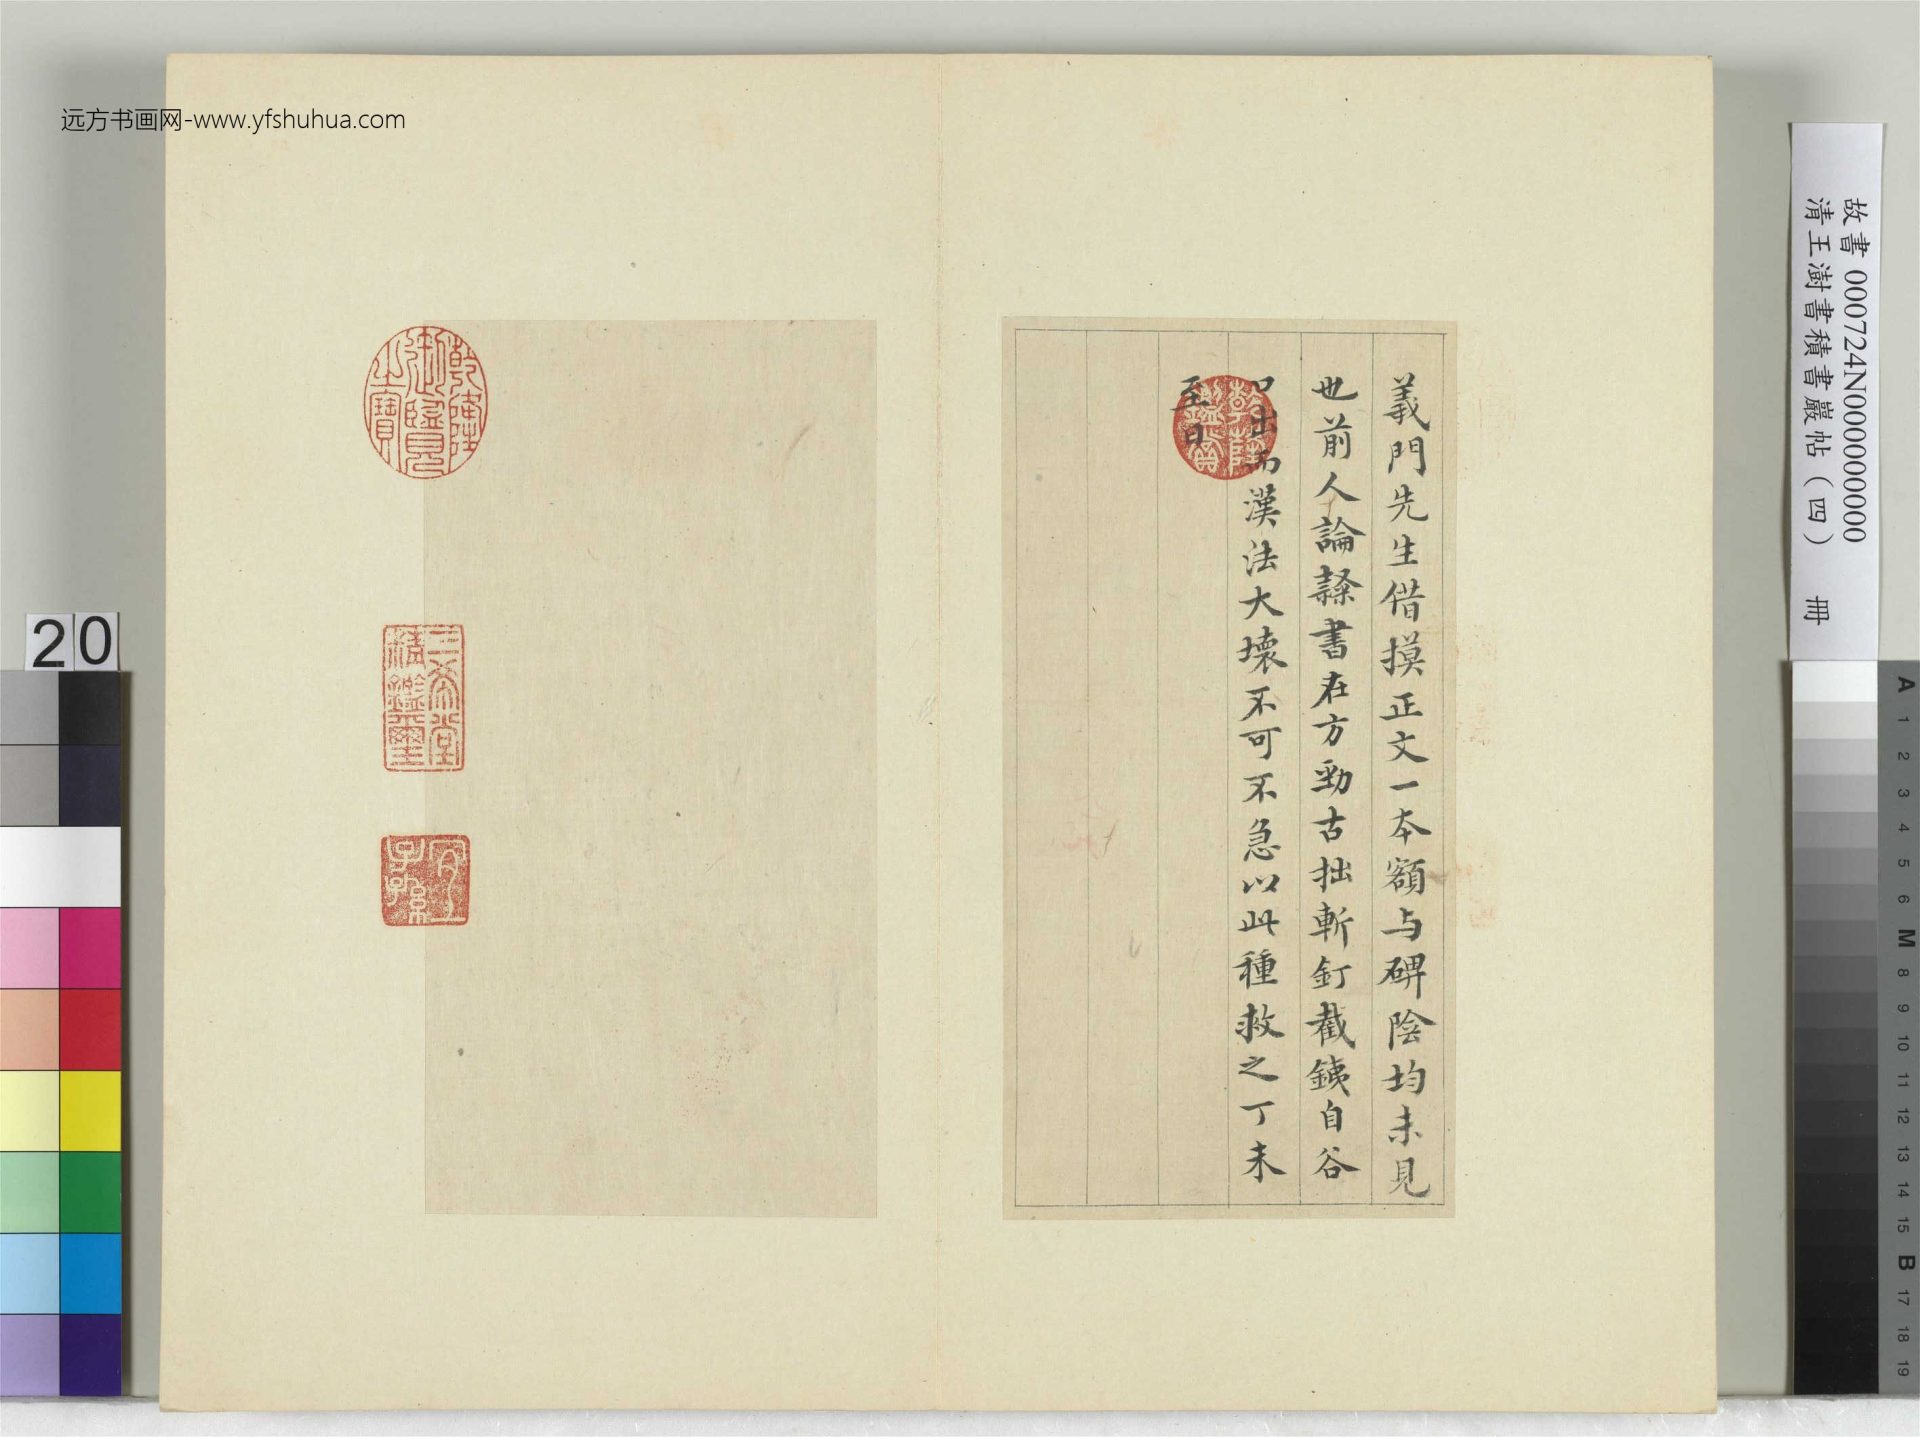 远方书画网-www.yfshuhua.com
故書 000724N000000000
清王澍書積書巖帖（四） 冊
義門先生借摸正文一本額与碑陰均未見
也前人論隸書在方勁古拙斬釘截銕自谷
口出而漢法大壞不可不急以此種救之丁未
至日
乾隆御覽之寶
三希堂精鑑璽
宜子孫
乾隆鑑賞
20
A 1 2 3 4 5 6 M 8 9 10 11 12 13 14 15 B 17 18 19